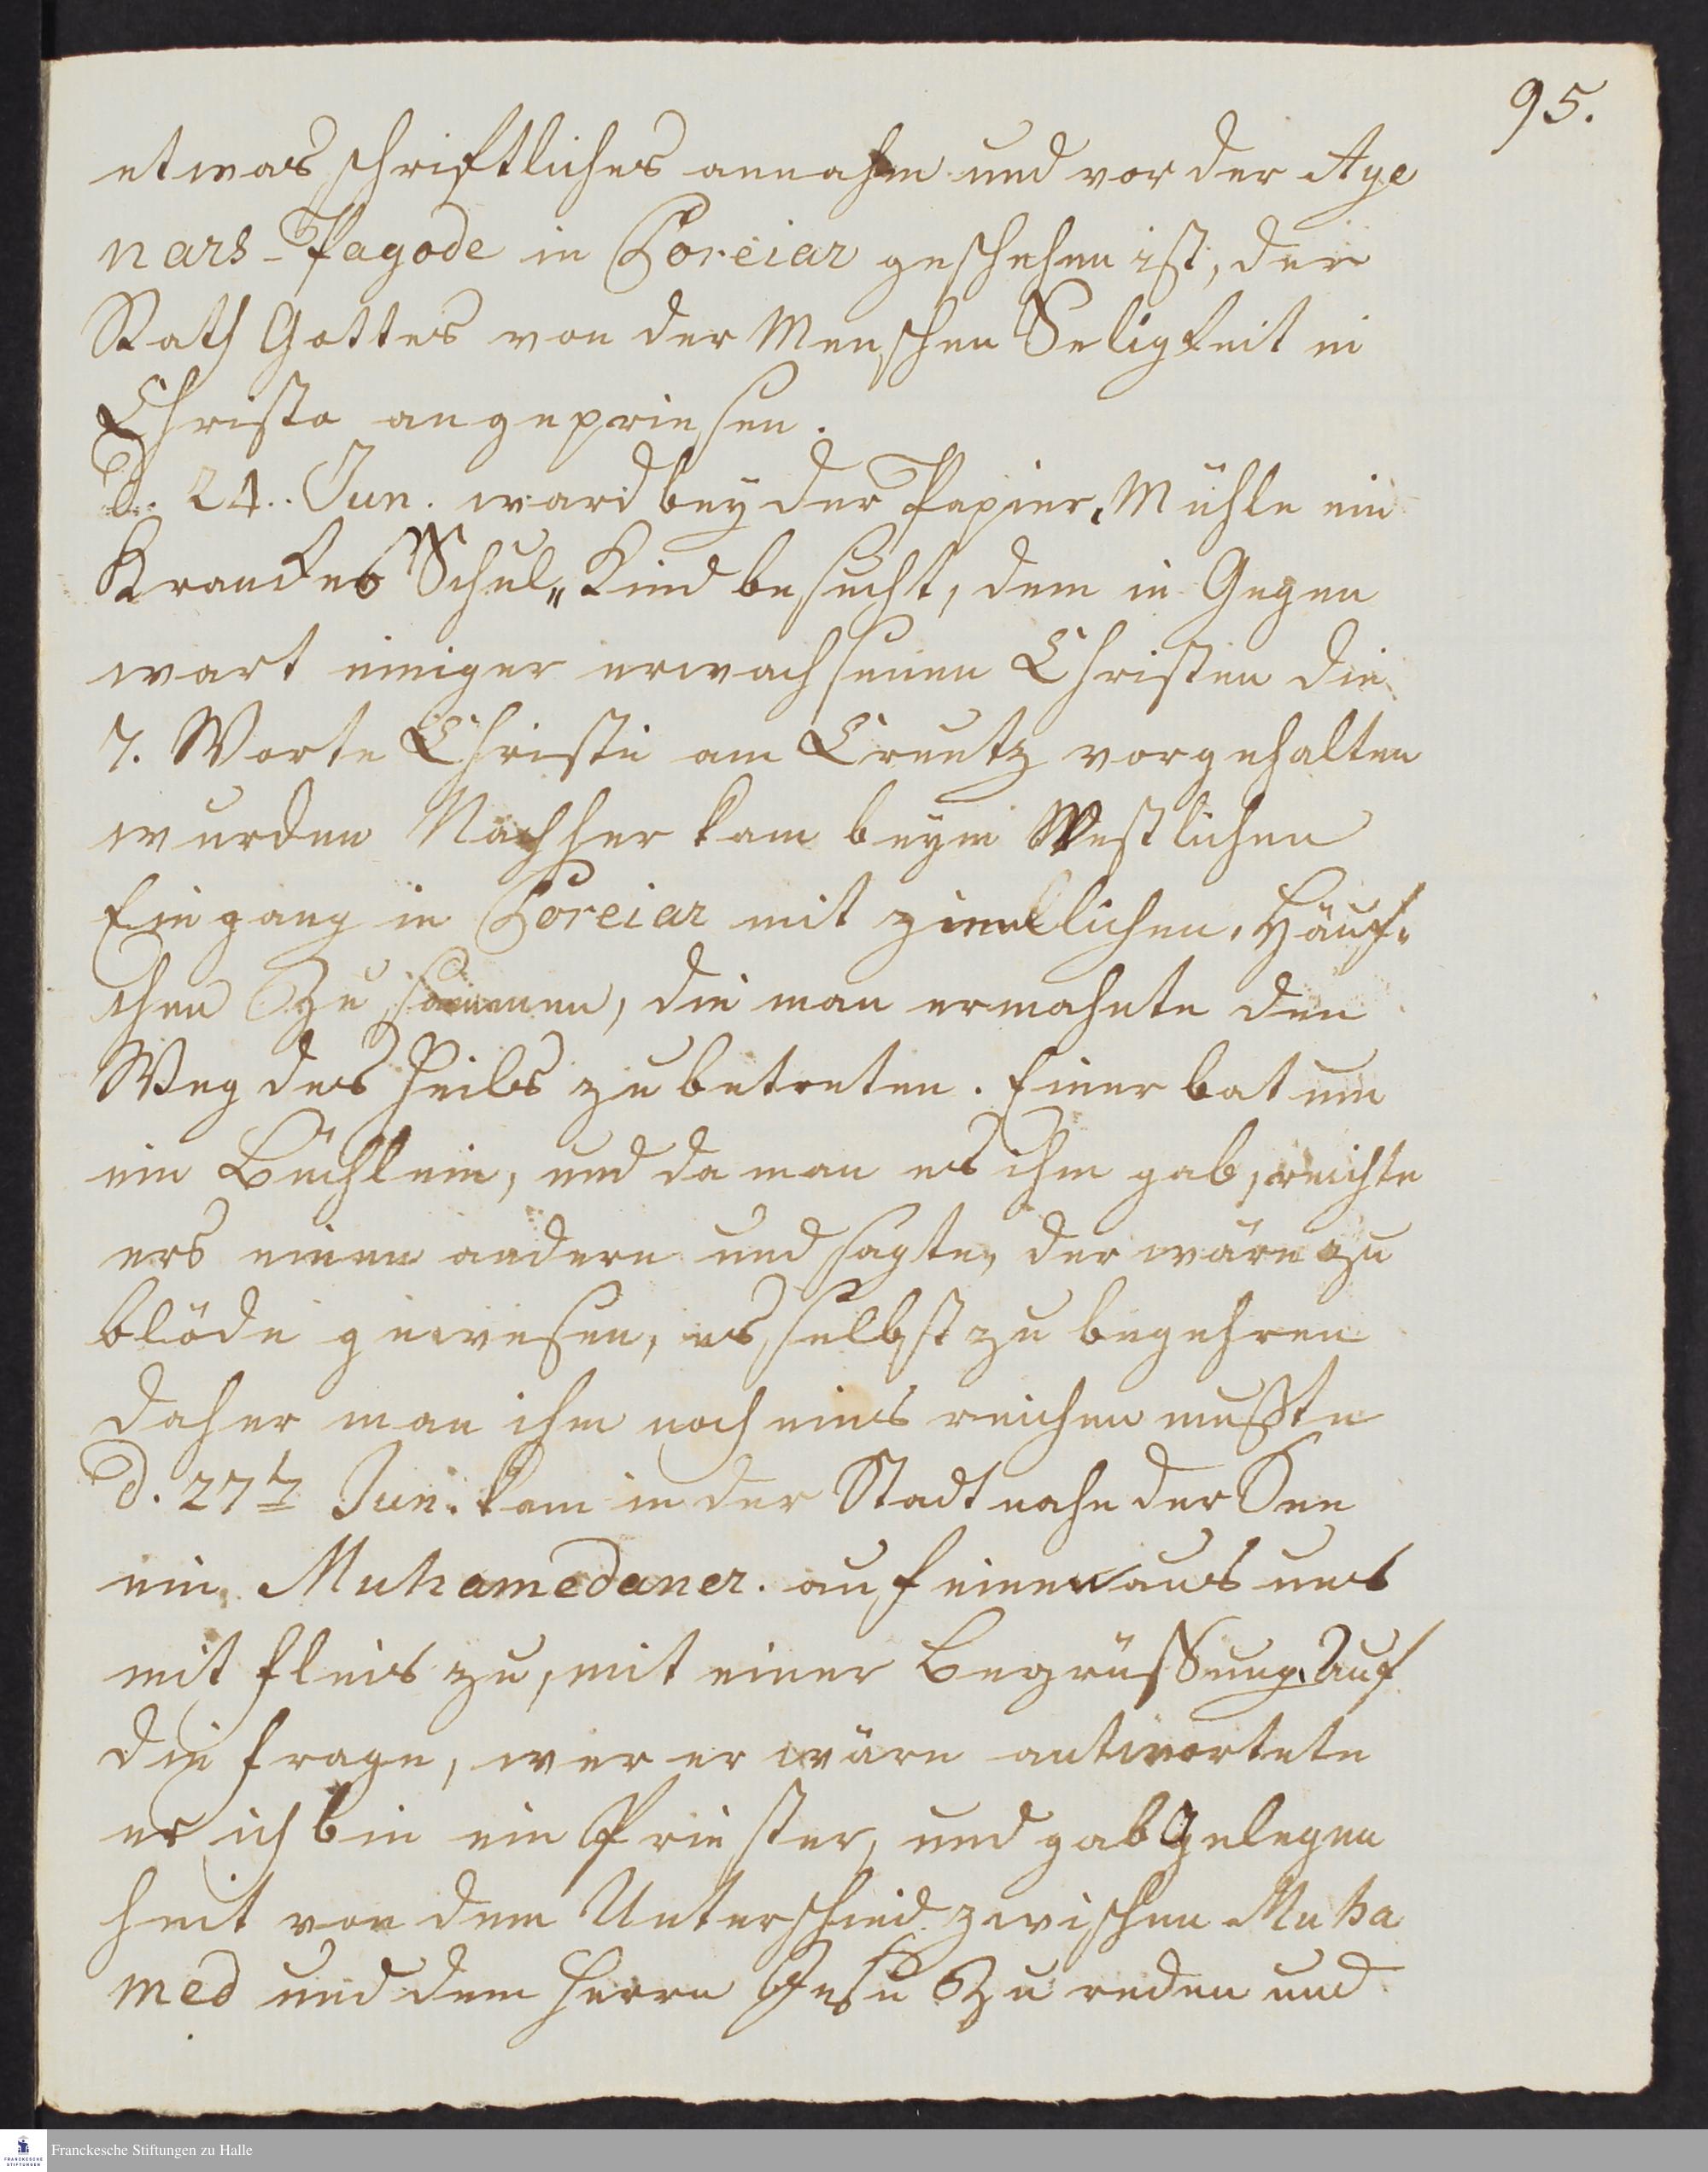 95.
etwas schriftliches annahm und vor der Aye
nars-Pagode in Poreiar geschehen ist, der
Rath Gottes von der Menschen Seligkeit in
Christo angepriesen.
d. 24. Jun. ward bey der Papier-Mühle ein
Kranckes Schul-Kind besucht, dem in Gegen
wart einiger erwachsenen Christen die
7. Worte Christi am Creutz vorgehalten
wurden Nachher kam beym Westlichen
Eingang in Poreiar mit zimlichen Häuf-
chen zu sammen, die man ermahnte den
Weg des Heils zu betreten. Einer bat um
ein Büchlein, und da man es ihm gab, reichte
ers einem andern und sagte, der wäre zu
blöde gewesen, es selbst zu begehren
daher man ihm noch eins reichen mußte
d. 27t Jun. kam in der Stadt nahe der See
ein Muhamedaner. auf einen aus uns
mit Fleis zu, mit einer Begrüssung. Auf
die Frage, wer er wäre antwortete
er ich bin ein Priester, und gab Gelegen
heit von dem Unterschied zwischen Muha
med und dem Herrn Jesu zu reden und
Franckesche Stiftungen zu Halle
FRANCKESCHE
STIFTUNGEN